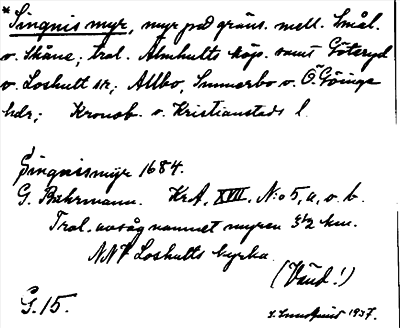 * Singnis myr, myr på gräns. mell. Smål.
o. Skåne; trol. Älmhults köp. samt Göteryd
o. Loshult sn; Allbo, Sunnerbo o. Ö. Göinge
hdr; Kronob. o. Kristianstads l.
Singnismÿr 1684.
G. Buhrmann. KrA, XVII, N:o 5, a, o. b.
Trol. avsåg namnet myren 3 1/2 km.
NNV Loshults kyrka.
(Vänd!)
G. 15.
1937.